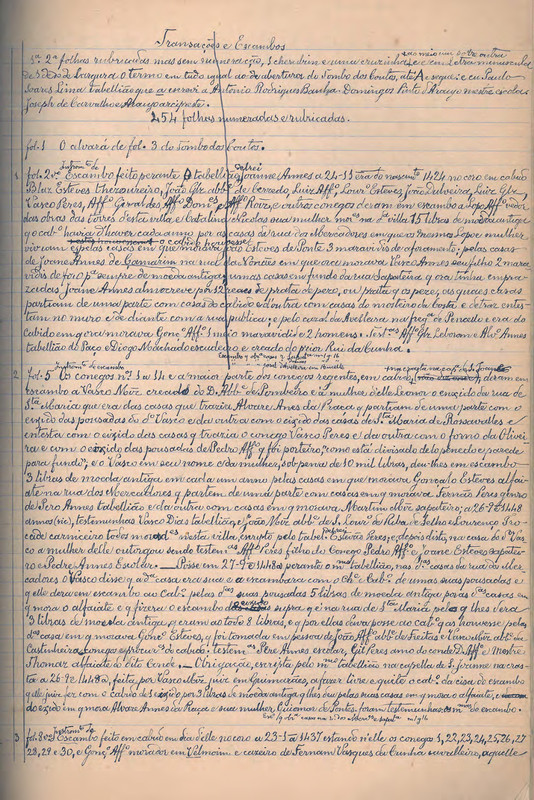 Transações e Escambos
1.ª 2.ª folhas rubricadas mas sem numeração,
de largura o termo em tudo igual ao de abertura do Tombo dos Coutos, até segue: eu Paulo
Soares Lima tabellião que a escrevi a Antonio Rodrigues Banha Domingos Pinto d'Araujo mestre escola
Joseph de Carvalho e Araujo arcipreste.
254 folhas numeradas e rubricadas.
fol. 1 O alvará de fol. 3 do Tombo dos Coutos.
1 fol. 2 Escambo feito perante o tabellião Joanne Annes a 24-11 era do nascimento 1424 no coro em cabido
Blaz Esteves thezoureiro, João Glz abb.e de Cerzedo, Luiz Aff.o Lour.o Esteves, João Dulveira, Luiz Glz,
Vasco Peres, Aff.o Geraldes, Aff.o Dom.es e Aff.o Vaz, e outros conegos deram em escambo a
das obras das torres desta villa, e Catalina Nicolas sua mulher mor.es na d.a villa 15 libras de moeda antiga
q o cab.o havia d'haver cada anno por as casas da rua dos Mercadores em que ora
vivo um e pelas casas que moradia Esteves de Ponte 3 maravidis de aforamento: pelas casas
de Joane Annes de Gomarim na rua da Nontões em que ora morava Vasco Annes seu filho 2 mara
vidis de foro p.a sempre de moeda antiga, umas casas em fundo da rua Sapateira q ora tinha empra
zadas Joane Annes almocreve por 12 reaes de prata de pezo, ou prata q os peze, as quaes casas
partiam de uma parte com casas do cabido e d'outra com casas do mosteiro da Costa e detraz entes
tam no muro e de diante com a rua publica: e pelo cazal da Avellara na freg.a de Pencello e era do
cabido em q ora morava Gonç.o Aff.o 1 maio maravidis e 2 homens. Test.as Aff.o Glz Leborom e Alv.o Annes
tabellião do Paço e Diogo Machado escudeiro e creado do prior Rui da Cunha.
2 fol. 5 Os conegos n.os 1 a 14 e a maior parte dos conegos regentes, em cabido, deram em
escambo a Vasco Mvz creado do D. Abb.e de Pombeiro e á mulher delle Leonor o enxido da rua de
S.ta Maria que era das casas que trazia Alvaro Anes da Praça q partiam de uma parte com o
enxido das pousadas do d.o Vasco e da outra com o eixido das casas de S.ta Maria de Rossavalles e
entesta com o eixido das casas q trazia o conego Vasco Peres e da outra com o forno da Olivei
ra e com o eixido das pousadas de Pedro Aff.o q foi porteiro, como está divisado de lo penedo e parede
para fundo, e o Vasco em seu nome e da mulher, sob pena de 10 mil libras, deu-lhes em escambo
3 libras de moeda antiga em cada um anno pelas casas em que morava Gonçalo Esteves alfai
ate na rua dos Mercadores q partem de uma parte com casas em q morava Fernão Pires genro
de Pero Annes tabellião e da outra com casas em q morava Martim Mvz sapateiro, a 26-7-1448
annos (sic), testemunhas Vasco Dias tabellião, e João Mvz abb.e de S. Lour.o de Riba de Selho e Lourenço Pro
cede carniceiro todos mor.es nesta villa, escripto pelo tabel. Esteves Peres; e depois disto, na casa do d.o Vas
co a mulher delle outorgou sendo testem.as Aff.o Peres filho do Conego Pedro Aff.o e Joane Esteves sapatei
ro e Pedre Annes Escolar. — Posse em 27-9-1448 perante o m.mo tabellião, nas d.as casas da rua de Mer
cadores o Vasco disse q a d.a casa era sua e a escambara com o Ch.e Cab.o de umas suas pousadas e
q elle dera em escambo ao Cab.o pelas d.as suas pousadas 5 libras de moeda antiga por a d.as casas em
q mora o alfaiate e q fizera o escambo supra q é na rua de S.ta Maria, pelo q lhes dera
3 libras de moeda antiga, q eram ao todo 8 libras, e q por ellas dava posse ao cab.o q as houvesse pelas
d.as casas em q morava Gonç.o Esteves, q foi tomada em pessoa de João Aff.o abb.e de Freitas e Vasco Mvz abb.e da
Castinheira conegos e procur.es do cabido: testem.as Pere Annes escolar, Gil Peres amo do conde D. Aff.o e Mestre
Thomaz alfaiate do dito Conde. — Obrigação, escrita pelo m.mo tabellião na capella de S. Joanne na cras
ta a 26-9-1448, feita por Vasco Mvz juiz em Guimarães, a fazer livre e quite o cab.o da cisa do escambo
q elle juiz fez com o cabido do eixido por 3 libras de moeda antiga q lhes deu pelas suas casas em q mora o alfaiate, e
do eixido em q mora Alvaro Annes da Praça e sua mulher, Guiomar de Pontes, foram testemunhas as m.mas do escambo.
3 fol. 8 Escambo feito em cabido em dia delle no coro a 23-1-1437 estando n'elle os conegos 1, 22, 23, 24, 25, 26, 27
28, 29 e 30, e Gonç.o Aff.o morador em Velmoim e cazeiro de Fernam Vasques da Cunha cavalleiro, aquelle